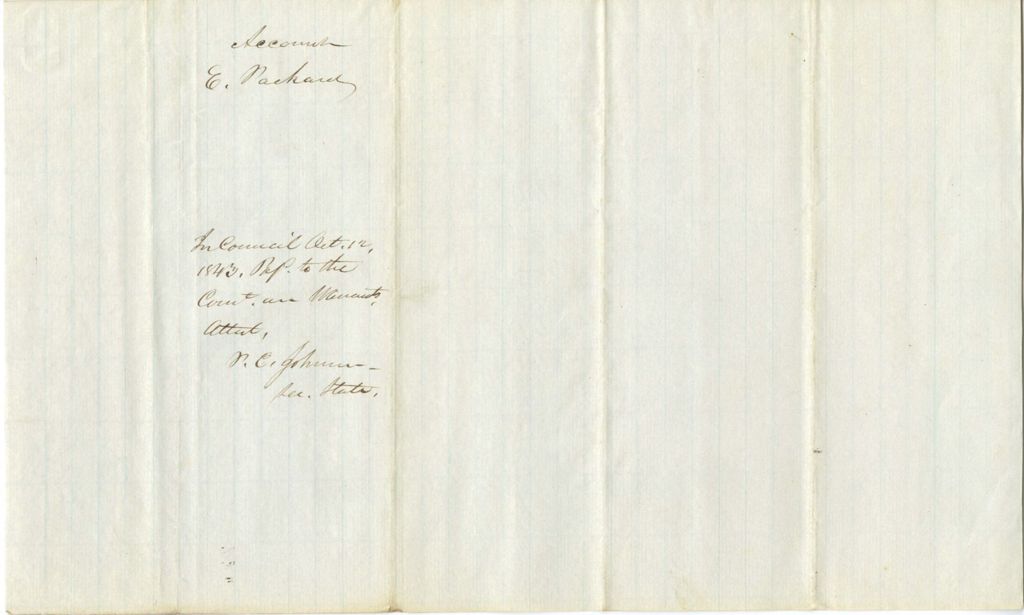 Account
E. Packard
In Council Oct. 12,
1843. Ref. to the
Comt. on Warrants,
Attest,
P. C. Johnson
Sec. State.